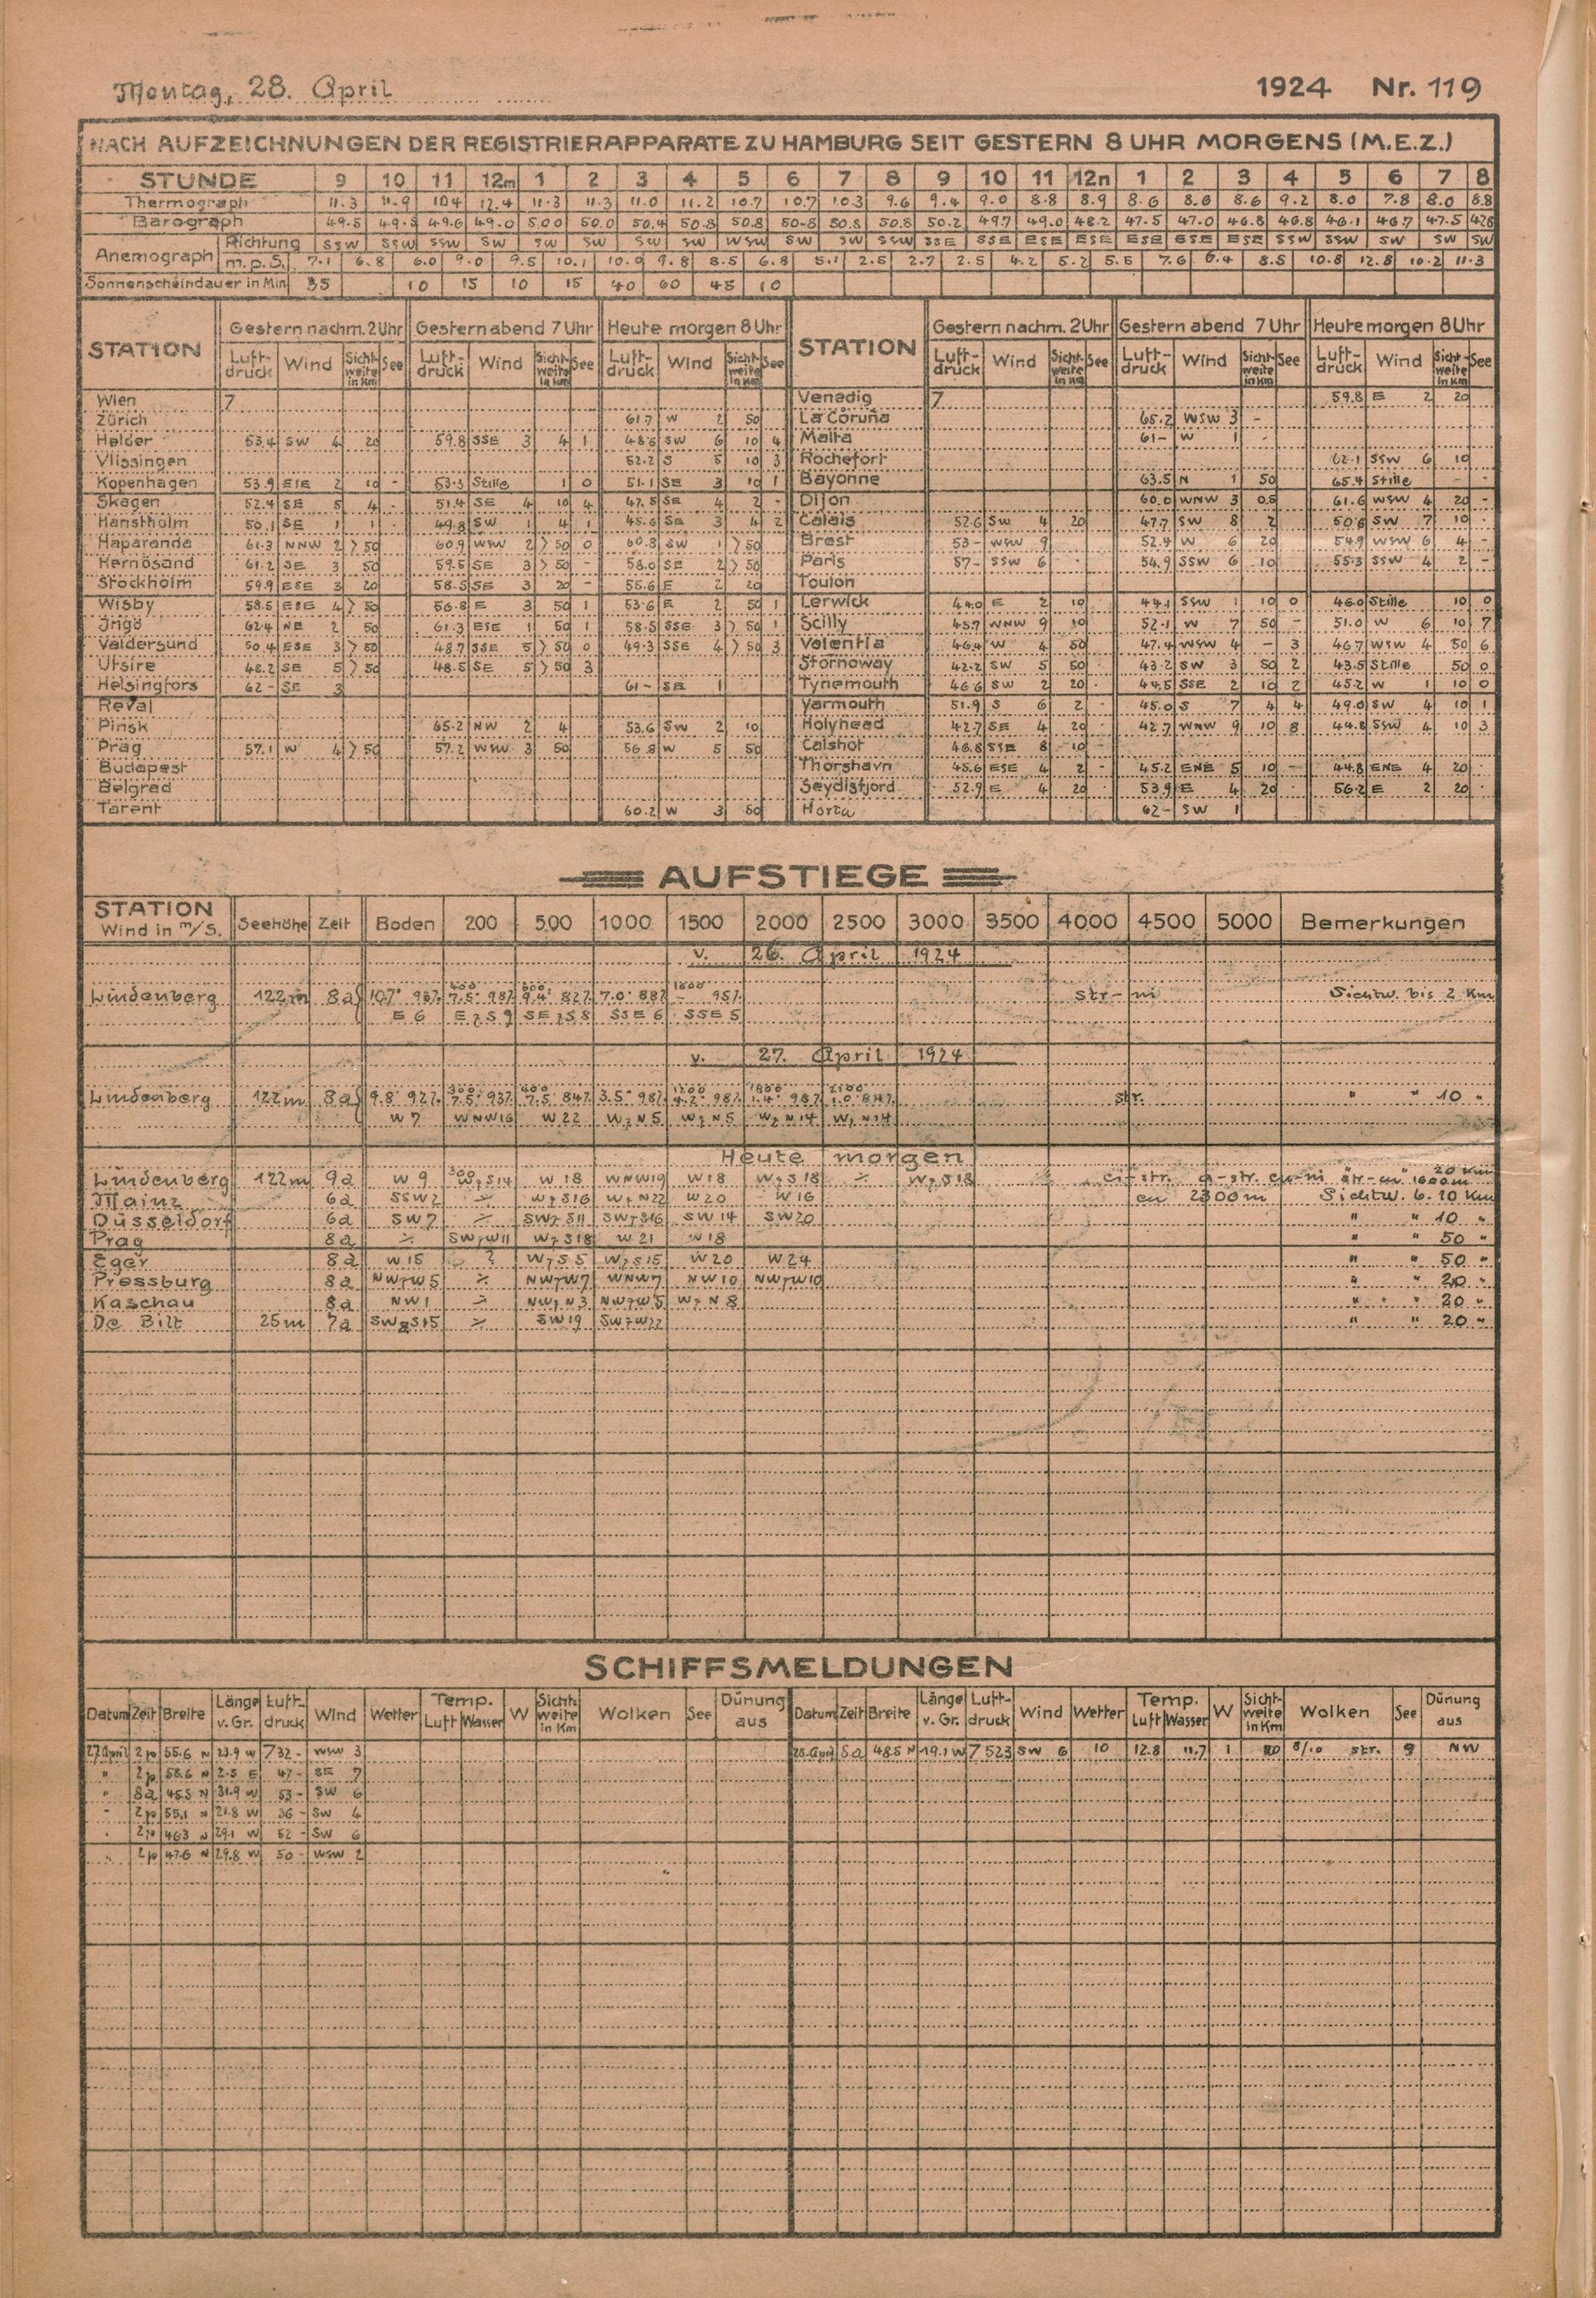 Montag, 28. April 1924 Nr. 119
NACH AUFZEICHNUNGEN DER REGISTRIERAPPARATE ZU HAMBURG SEIT GESTERN 8 UHR MORGENS (M.E.Z.)
STUNDE 9 10 11 12m 1 2 3 4 5 6 7 8 9 10 11 12n 1 2 3 4 5 6 7 8
Thermograph 11.3 11.9 10.4 12.4 11.3 11.3 11.0 11.2 10.7 10.7 10.3 9.6 9.4 9.0 8.8 8.9 8.6 8.8 8.6 9.2 8.0 7.8 8.0 8.8
Barograph 49.5 49.5 49.6 49.0 50.0 50.0 50.4 50.8 50.8 50.8 50.8 50.8 50.2 49.7 49.0 48.2 47.5 47.0 46.8 46.8 46.1 46.7 47.5
Anemograph Richtung SSW SSW SSW SW SW SW SW SW WSW SW SW SSW SSE SSE ESE ESE ESE ESE ESE SSW SSW SW SW SW
m.p.S. 7.1 6.8 6.0 9.0 9.5 10.1 10.9 9.8 8.5 6.8 5.1 2.5 2.7 2.5 4.2 5.2 5.5 7.6 6.4 8.5 10.8 12.8 10.2 11.3
Sonnenscheindauer in Min 35 10 15 10 15 40 60 45 10
STATION Gestern nachm. 2 Uhr Gestern abend 7 Uhr Heute morgen 8 Uhr STATION Gestern nachm. 2 Uhr Gestern abend 7 Uhr Heute morgen 8 Uhr
Luftdruck Wind Sichtweite in Km See Luftdruck Wind Sichtweite in Km See Luftdruck Wind Sichtweite in Km See Luftdruck Wind Sichtweite in Km See Luftdruck Wind Sichtweite in Km See Luftdruck Wind Sichtweite in Km See
Wien 7 Venedig 7 59.8 E 2 20
Zürich 61.7 W 2 50 La Coruña 65.2 WSW 3 -
Helder 53.4 SW 4 20 59.8 SSE 3 4 1 48.6 SW 6 10 4 Malta 61- W 1 -
Vlissingen 52.2 S 5 10 3 Rochefort 62.1 SSW 6 10
Kopenhagen 53.9 ESE 2 10 - 53.3 Stille 1 0 51.1 SE 3 10 1 Bayonne 63.5 N 1 50 65.4 Stille -
Skagen 52.4 SE 5 4 - 51.4 SE 4 10 4 47.5 SE 4 2 - Dijon 60.0 WNW 3 0.5 61.6 WSW 4 20 -
Hanstholm 50.1 SE 1 1 49.8 SW 1 4 1 45.6 SE 3 4 2 Calais 52.6 SW 4 20 47.7 SW 8 2 50.8 SW 7 10
Haparanda 61.3 NNW 2 >50 60.9 WSW 2 >50 0 60.8 SW 1 >50 Brest 53- WSW 9 52.4 W 6 20 54.9 WSW 6 4 -
Hernösand 61.2 SE 3 50 59.5 SE 3 >50 - 58.0 SE 2 >50 Paris 57- SSW 6 54.9 SSW 6 10 55.3 SSW 4 2 -
Stockholm 59.9 ESE 3 20 58.5 SE 3 20 - 55.6 E 2 20 Toulon
Wisby 58.5 ESE 4 >50 56.8 E 3 50 1 53.6 E 2 50 1 Lerwick 44.0 E 2 10 44.1 SSW 1 10 0 46.0 Stille 10 0
Ingö 62.4 NE 2 50 61.3 ESE 1 50 1 58.5 SSE 3 >50 1 Scilly 45.7 WNW 9 10 52.1 W 7 50 - 51.0 W 6 10 7
Valdersund 50.4 ESE 3 >50 48.7 SSE 5 >50 0 49.3 SSE 4 >50 3 Valentia 46.4 W 4 50 47.4 WSW 4 - 3 46.7 WSW 4 50 6
Utsire 48.2 SE 5 >50 48.5 SE 5 >50 3 Stornoway 42.2 SW 5 50 43.2 SW 3 50 2 43.5 Stille 50 0
Helsingfors 62- SE 3 61- SE 1 Tynemouth 46.6 SW 2 20 44.5 SSE 2 10 2 45.2 W 1 10 0
Reval Yarmouth 51.9 S 6 2 45.0 S 7 4 4 49.0 SW 4 10 1
Pinsk 65.2 NW 2 4 53.6 SW 2 10 Holyhead 42.7 SE 4 20 42.7 WNW 9 10 8 44.8 SSW 4 10 3
Prag 57.1 W 4 >50 57.2 WSW 3 50 56.8 W 5 50 Calshot 46.8 SSE 8 10
Budapest Thorshavn 45.6 ESE 4 2 45.2 ENE 5 10 - 44.8 ENE 4 20
Belgrad Seydisfjord 52.9 E 4 20 53.9 E 4 20 56.2 E 2 20
Tarent 60.2 W 3 50 Horta 62- SW 1
AUFSTIEGE
STATION Wind in m/S. Seehöhe Zeit Boden 200 500 1000 1500 2000 2500 3000 3500 4000 4500 5000 Bemerkungen
v. 26. April 1924
Lindenberg 122m 8a 10.7° 93% 7.5° 98% 9.4° 82% 7.0° 88% - 95% str-ni Sichtw. bis 2 Km
E 6 E z S 9 SE z S 8 SSE 6 SSE 5
v. 27. April 1924
Lindenberg 122m 8a 9.8° 92% 7.5° 93% 7.5° 84% 3.5° 98% 98% 98% str. " " 10 "
W 7 WNW 16 W 22 W z N 5 W z N 5 W z N 14 W z N 14
Heute morgen
Lindenberg 122m 9a W 9 W z S 14 W 18 WNW 19 W 18 W z S 18 ⁒ W z S 18 ci-str. a-str. cu-ni str-cu 1600m " 20 Km
Mainz 6a SSW 2 ⁒ W z S 16 W z N 22 W 20 W 16 cu 2300m Sichtw. 6-10 Km
Düsseldorf 6a SW 7 ⁒ SW z S 11 SW z S 16 SW 14 SW 20 " " 10 "
Prag 8a ⁒ SW z W 11 W z S 18 W 21 W 18 " " 50 "
Eger 8a W 15 ? W z S 5 W z S 15 W 20 W 24 " " 50 "
Pressburg 8a NW z W 5 ⁒ NW z W 7 WNW 7 NW 10 NW z W 10 " " 20 "
Kaschau 8a NW 1 ⁒ NW z N 3 NW z W 5 W z N 8 " " 20 "
De Bilt 25m 7a SW z S 15 ⁒ SW 19 SW z W 22 " " 20 "
SCHIFFSMELDUNGEN
Datum Zeit Breite Länge v. Gr. Luftdruck Wind Wetter Temp. Luft Wasser W Sichtweite in Km Wolken See Dünung aus Datum Zeit Breite Länge v. Gr. Luftdruck Wind Wetter Temp. Luft Wasser W Sichtweite in Km Wolken See Dünung aus
27. April 2p 55.6 N 23.9 W 732- WSW 3 28. April 8a 48.5 N 19.1 W 752.3 SW 6 10 12.8 11.7 1 8/10 str. 9 NW
" 2p 55.6 N 2.5 E 47- SE 7
" 8a 45.5 N 31.9 W 53- SW 6
" 2p 55.1 N 21.8 W 36- SW 4
" 2p 46.3 N 29.1 W 52- SW 6
" 2p 47.6 N 29.8 W 50- WSW 2